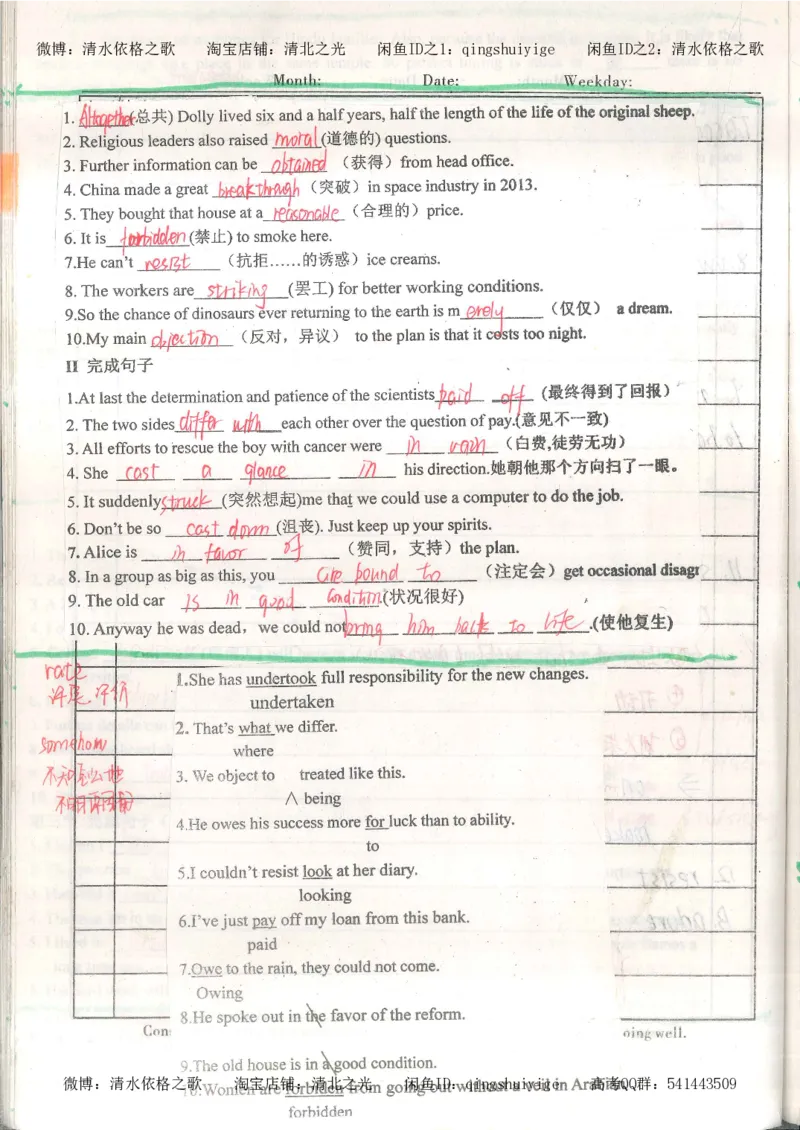 微博：清水依格之歌 淘宝店铺：清北之光 闲鱼ID之1：qingshuiyige 闲鱼ID之2：清水依格之歌
Month: Date: Weekday:
1. Altogether(总共) Dolly lived six and a half years, half the length of the life of the original sheep.
2. Religious leaders also raised moral (道德的) questions.
3. Further information can be obtained （获得）from head office.
4. China made a great breakthrough （突破）in space industry in 2013.
5. They bought that house at a reasonable （合理的）price.
6. It is forbidden (禁止) to smoke here.
7.He can't resist （抗拒……的诱惑）ice creams.
8. The workers are striking (罢工) for better working conditions.
9.So the chance of dinosaurs ever returning to the earth is merely （仅仅） a dream.
10.My main objection （反对，异议） to the plan is that it costs too night.
II 完成句子
1.At last the determination and patience of the scientists paid off （最终得到了回报）
2. The two sides differ with each other over the question of pay.(意见不一致)
3. All efforts to rescue the boy with cancer were in vain （白费,徒劳无功）
4. She cast a glance in his direction.她朝他那个方向扫了一眼。
5. It suddenly struck (突然想起)me that we could use a computer to do the job.
6. Don't be so cast down (沮丧). Just keep up your spirits.
7. Alice is in favor of （赞同，支持）the plan.
8. In a group as big as this, you are bound to （注定会）get occasional disagr
9. The old car is in good condition.(状况很好)
10. Anyway he was dead，we could not bring him back to life.(使他复生)
rate
somehow
1.She has undertook full responsibility for the new changes.
undertaken
2. That's what we differ.
where
3. We object to treated like this.
∧ being
4.He owes his success more for luck than to ability.
to
5.I couldn't resist look at her diary.
looking
6.I've just pay off my loan from this bank.
paid
7.Owe to the rain, they could not come.
Owing
8.He spoke out in the favor of the reform.
Con oing well.
9.The old house is in a good condition.
微博：清水依格之歌 淘宝店铺：清北之光 闲鱼ID：qingshuiyige 高考QQ群：541443509
10.Women are forbiden from going out without a veil in
forbidden